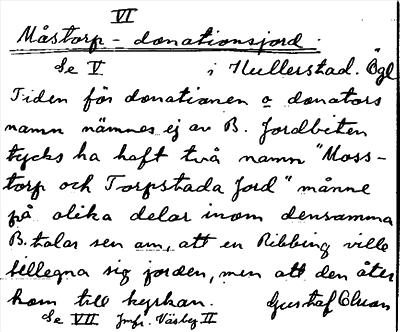 VI
Måstorp - donationsjord.
Se V i Hullerstad. Ögl
Tiden för donationen o donators
namn nämnes ej av B. Jordbiten
tycks ha haft två namn "Moss-
torp och Torpstada Jord" månne
på olika delar inom densamma
B. talar sen om, att en Ribbing ville
tillegna sig jorden, men att den åter
kom till kyrkan. Gustaf Cluan
Se VII Jmfr. Väsby II